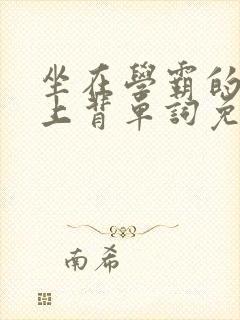 坐在學霸的
上背單詞免
南希